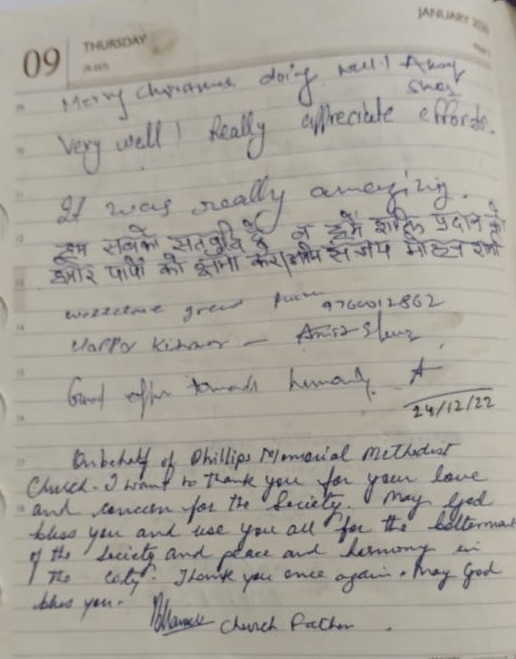 JANUARY
09 THURSDAY
Merry Christmas doing well!
Very well! Really appreciate effords.
It was really amazing.
हम सबको सदबुद्धि दे व हमें शान्ति प्रदान करे
हमारे पापों को क्षमा करे
9760012862
Happy
Good towards humanity.
24/12/22
On behalf of Phillips Memorial Methodist
Church. I want to thank you for your love
and concern for the Society. May God
bless you and use you all for the betterment
of the Society and peace and harmony in
the city. Thank you once again. May God
bless you.
Church Father.